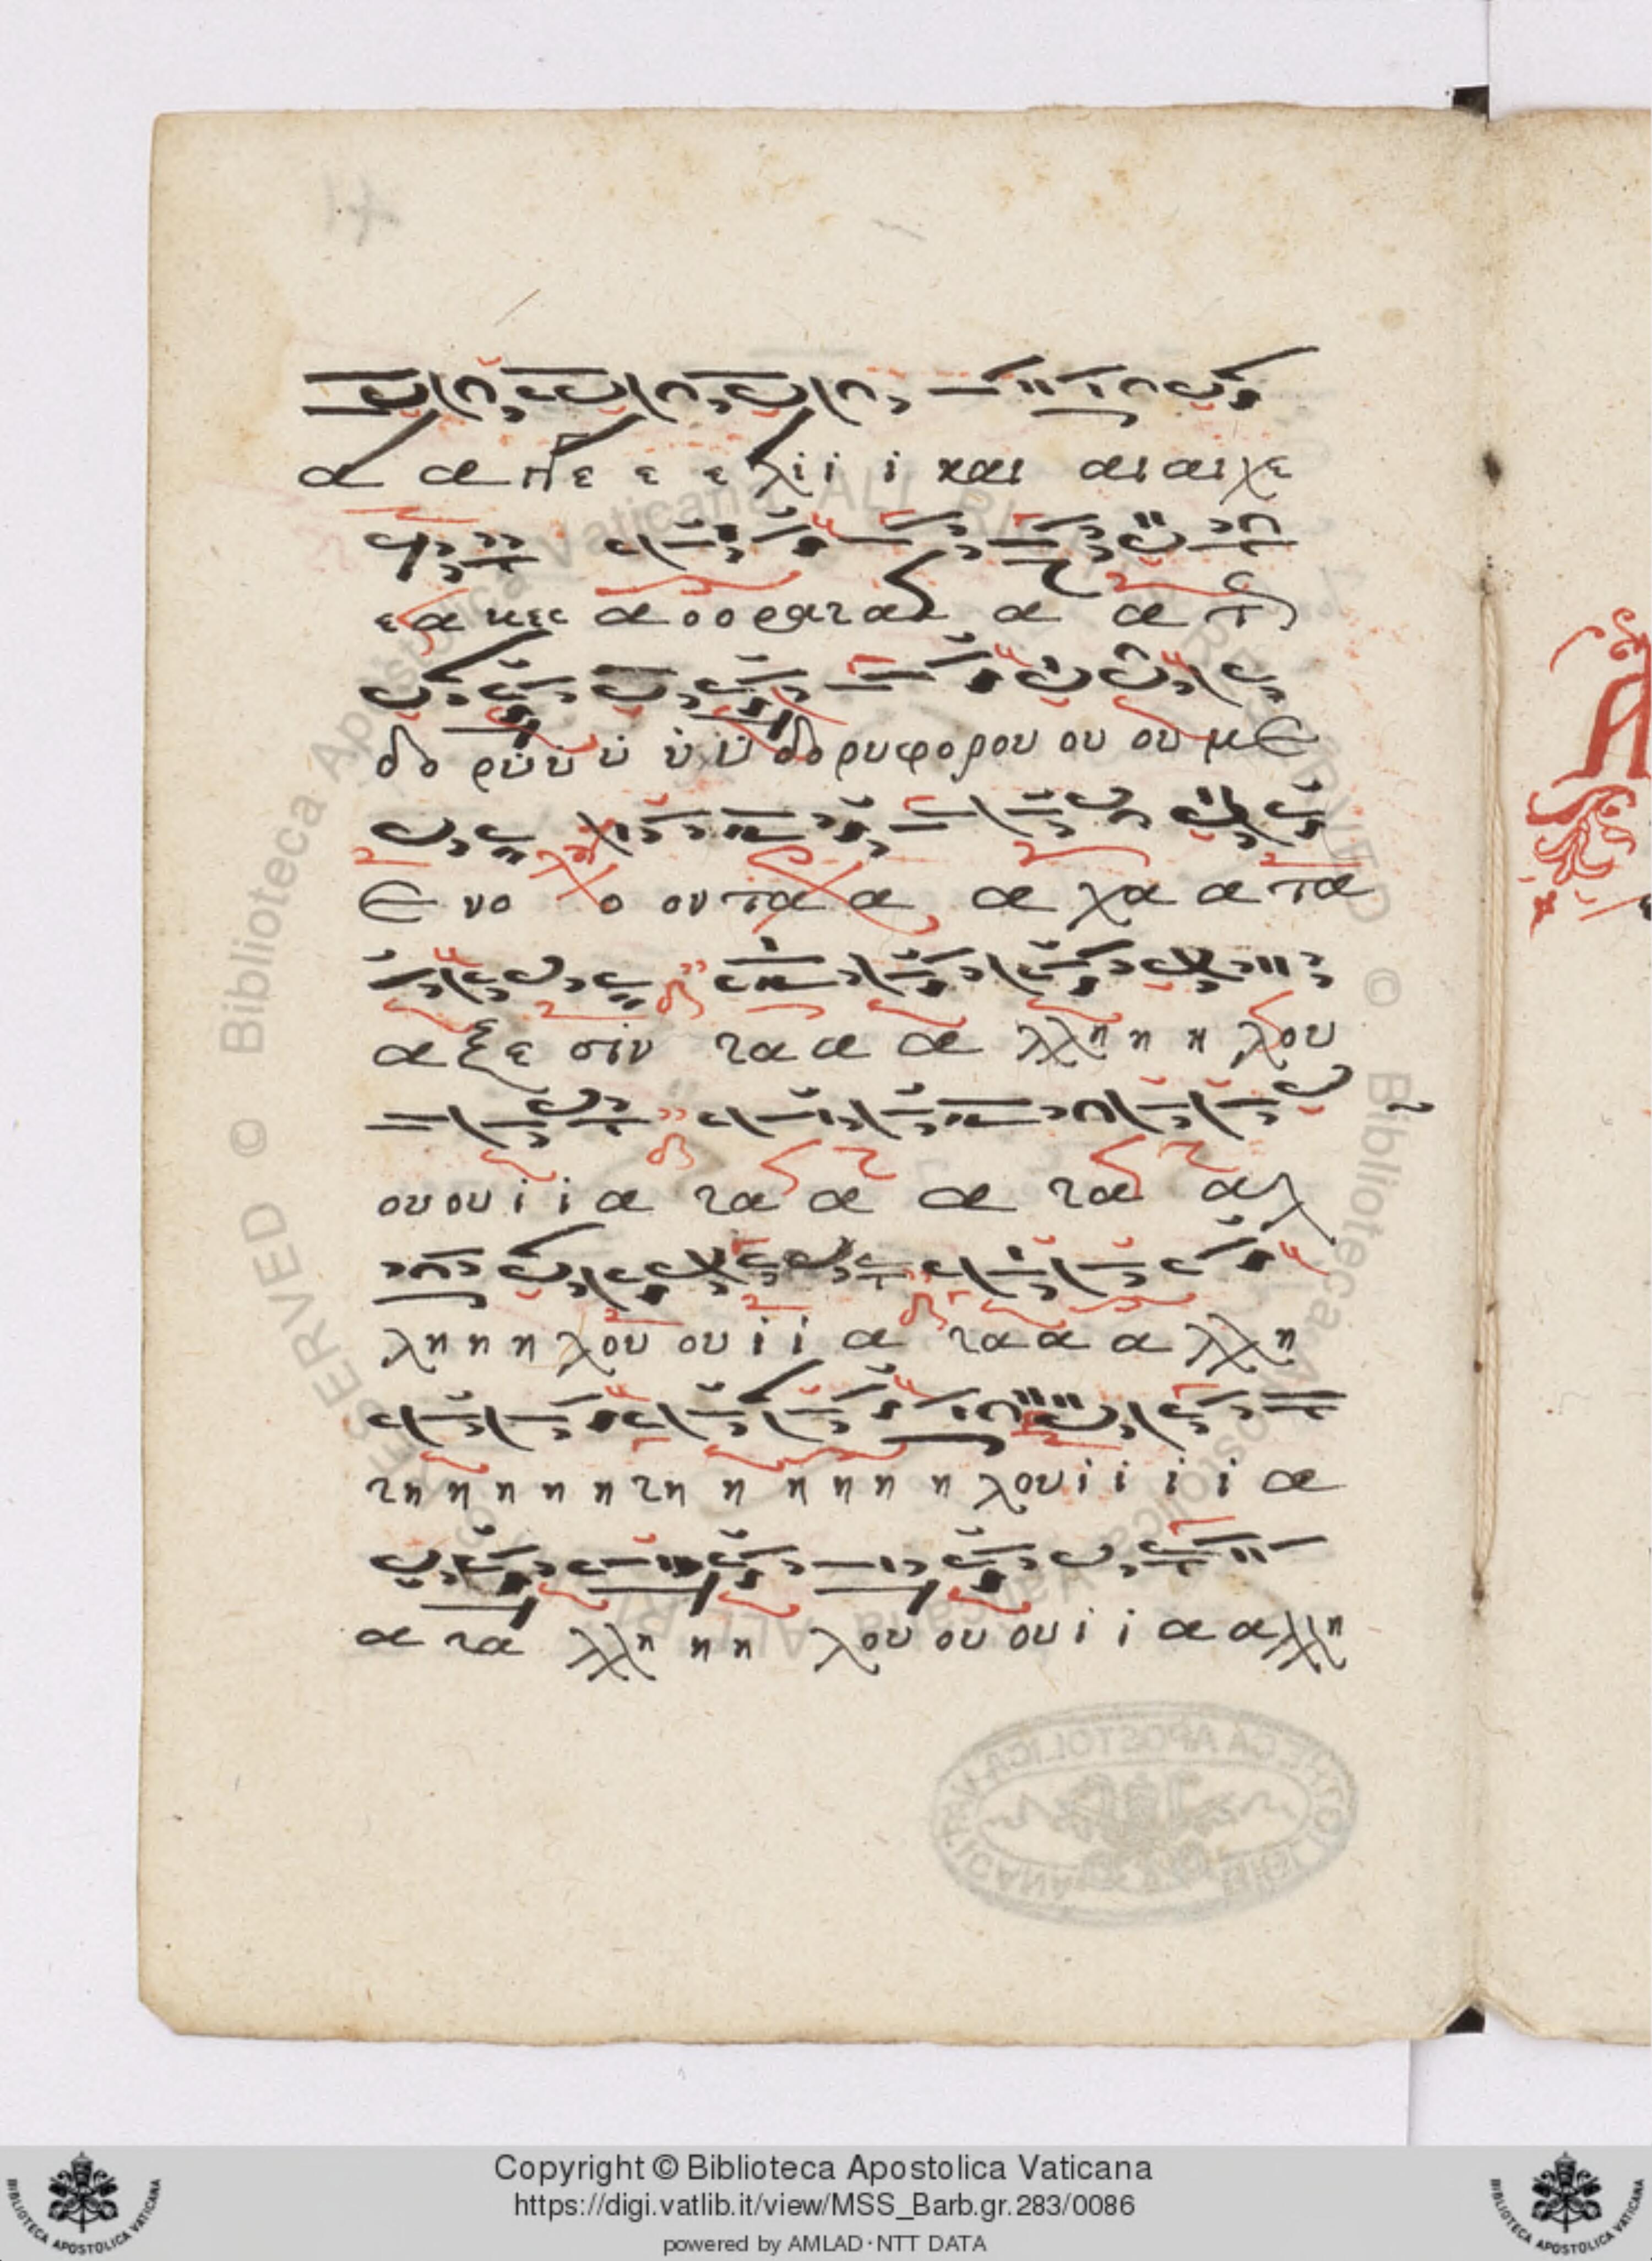 α α πε ε ε λι ι ι και αι αι χε
ε α κεις α ο ο ρα τα α α α τ
δο ρυ υ υ υ υ δο ρυ φο ρου ου ου με
ε νο ο ον τα α α χα α τα
α ξε σιν τα α α λλη η η λου
ου ου ι ι α τα α α τα αλ
λη η η λου ου ι ι α τα α α λλη
τη η η η η τη η η η η η λου ι ι ι ι α
α τα λλη η η λου ου ου ι ι α α λλη
Copyright © Biblioteca Apostolica Vaticana
https://digi.vatlib.it/view/MSS_Barb.gr.283/0086
powered by AMLAD·NTT DATA